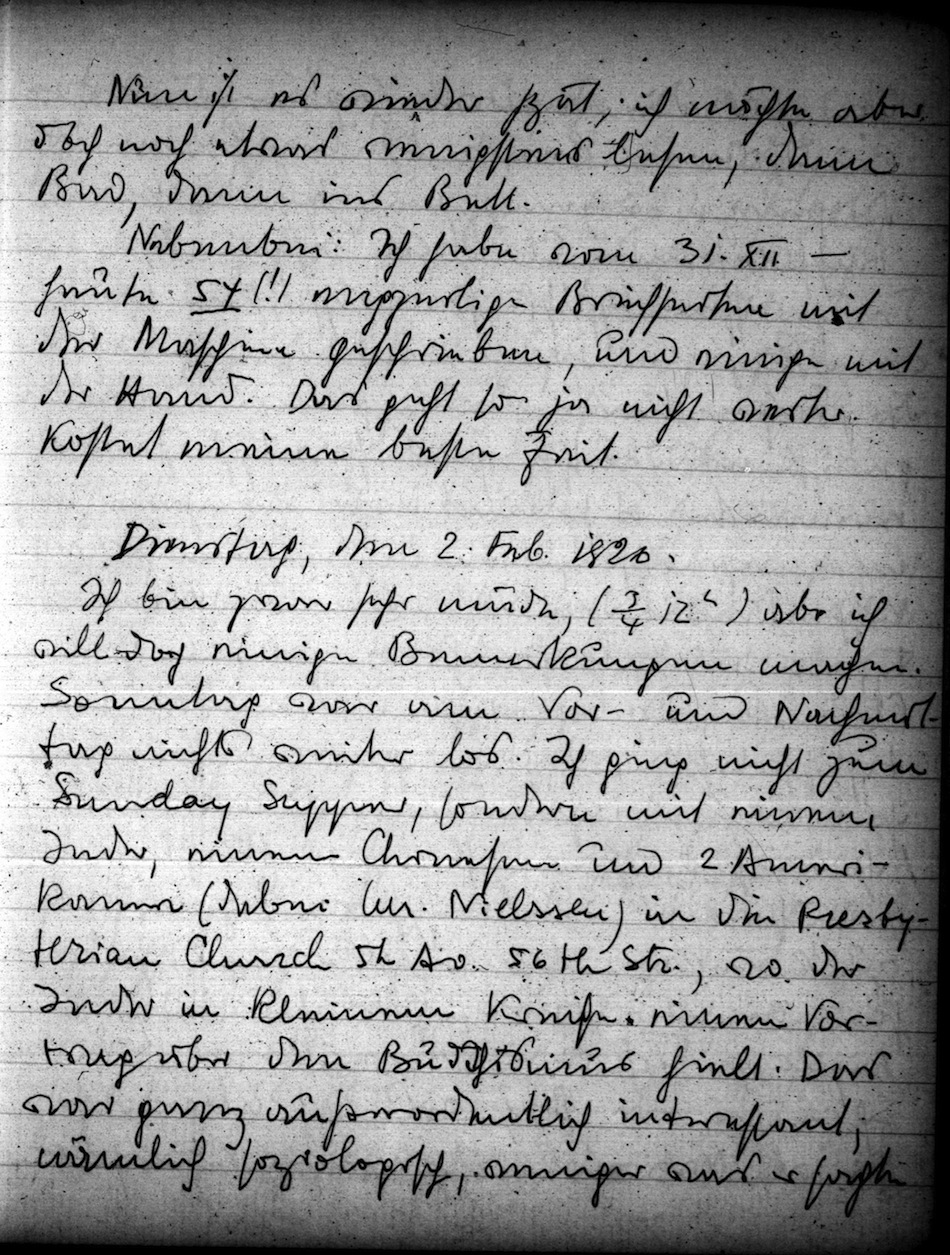 Nun ist es wieder spät, ich möchte aber
doch noch etwas wenigstens lesen, dann
Bad, dann ins Bett.
Nebenbei: Ich habe vom 31. XII –
heute 54 (!) engzeilige Briefseiten mit
der Maschine geschrieben, und einige mit
der Hand. Das geht so ja nicht weiter.
Kostet meine beste Zeit.
Dienstag, den 2. Feb. 1926.
Ich bin zwar sehr müde, (3/4 12 h) aber ich
will doch einige Bemerkungen machen.
Sonntag war am Vor- und Nachmit-
tag nichts weiter los. Ich ging nicht zum
Sunday Supper, sondern mit einem
Inder, einem Chinesen und 2 Ameri-
kanern (dabei Nielssen) in die Presby-
terian Church 5th Av. 56th Str., wo der
Inder in kleinem Kreise einen Vor-
trag über den Buddhismus hielt. Das
war ganz außerordentlich interessant,
nämlich soziologisch, weniger was er sagte